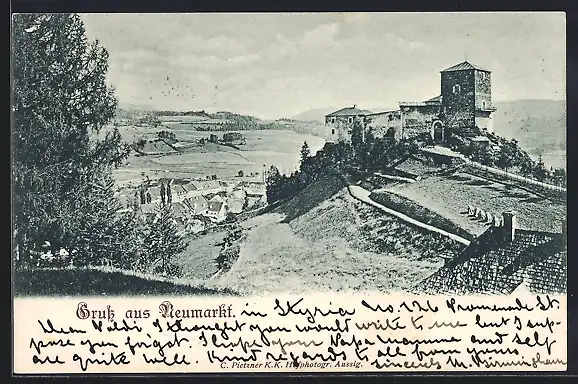 Gruß aus Neumarkt. in Styria No. 126 Promenade St.
Dear Valdi, I thought you would write to me but I sup-
pose you forgot. I hope your Papa Mamma and self
are quite well. Kind regards to all from yours
sincerely M. Birmingham
C. Pietzner K.K. Hofphotogr. Aussig.